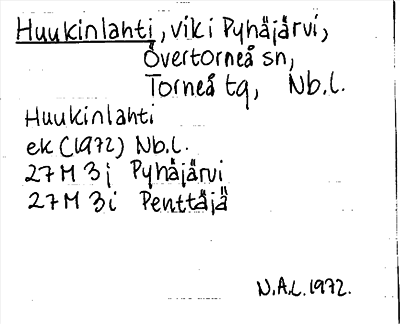 Huukinlahti, vik i Pyhäjärvi,
Övertorneå sn,
Torneå tg, Nb.l.
Huukinlahti
ek (1972) Nb.l.
27 M 3 j Pyhäjärvi
27 M 3 i Penttäjä
N.A.L. 1972.